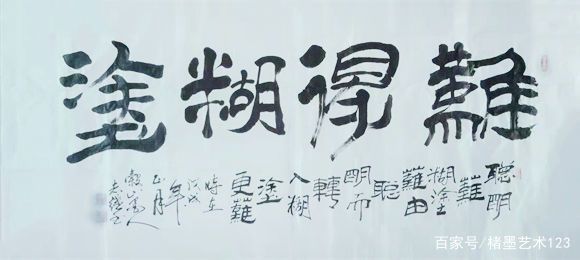 難得糊塗
聰明
難
糊塗
難由
聰
明而
轉
入糊
塗
更難
時在
戊戌
年
正月
百家号/楮墨艺术123